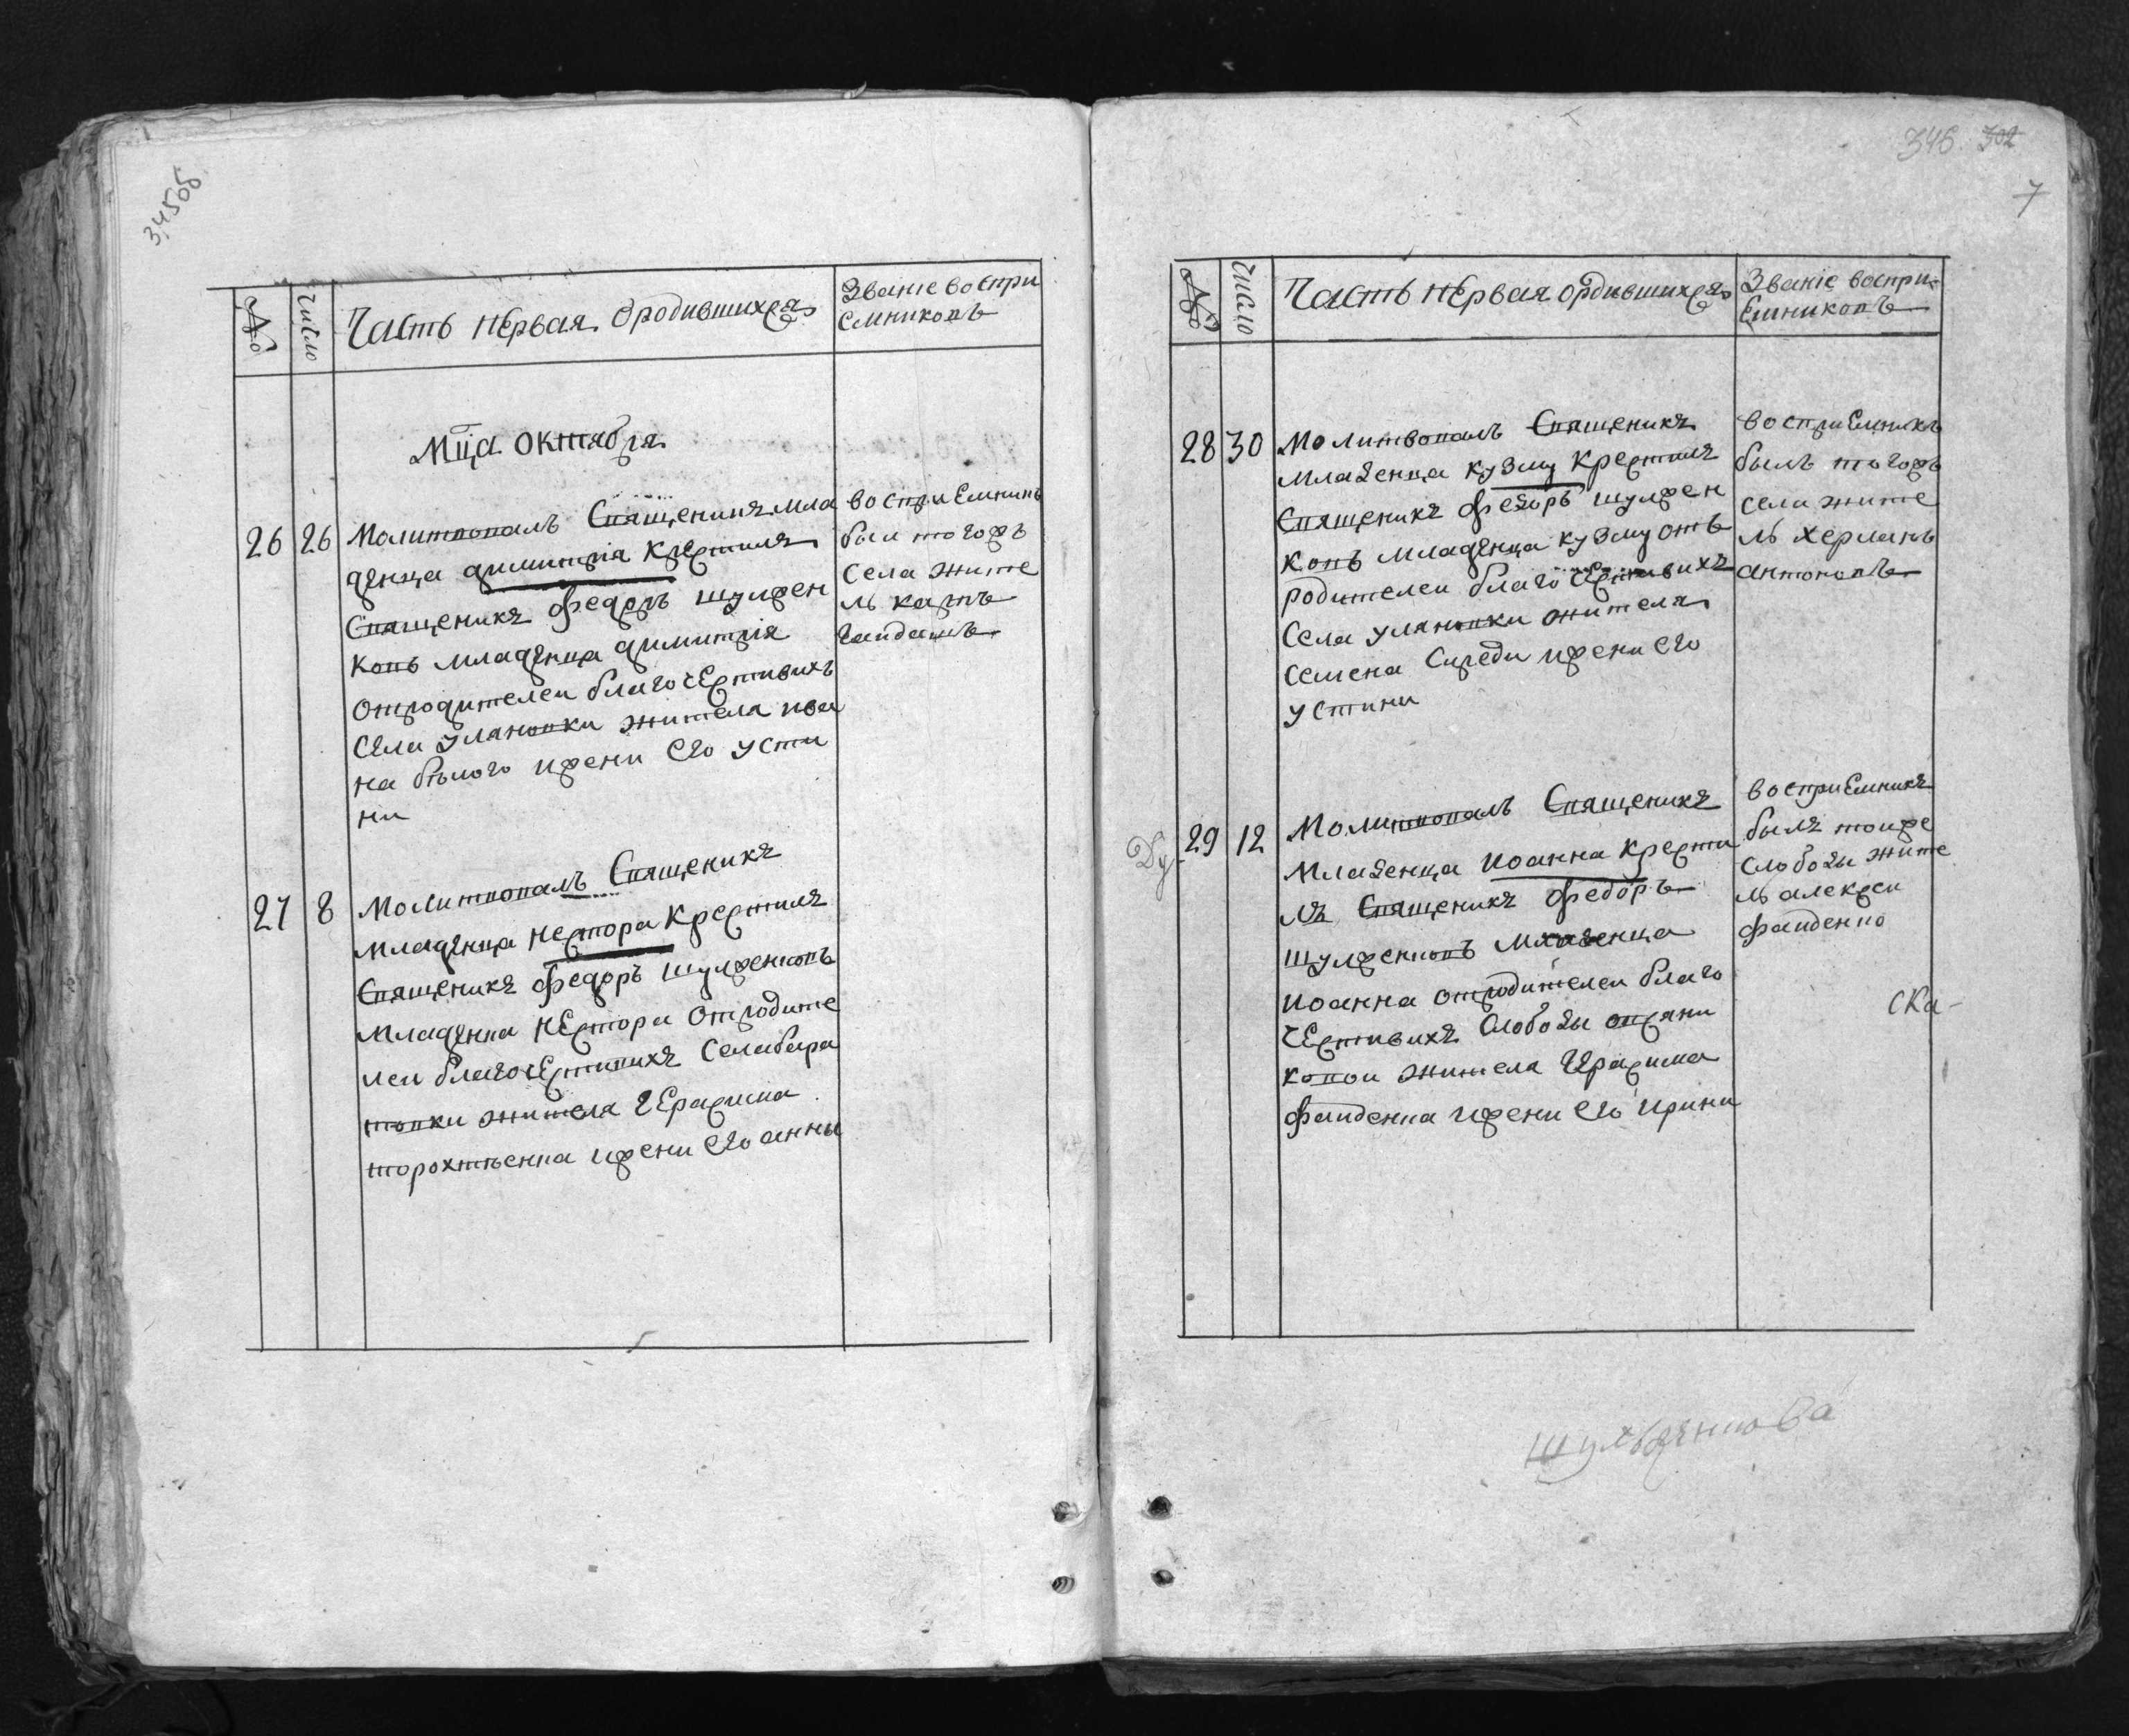 34505
№
Число
Часть перваяОродившихся
Звание воспри
емниковъ
Мца октября
26 26 Молитвовалъ Священикъ мла
денца димитрїя крестилъ
Священикъ федоръ шулжен
ковъ младенца димитрїя
отродителеи благочестивихъ
села улановки жителя ива
на бѣлого ижени его усти
ни
воспрїемникъ
был тогожъ
села жите
ль карпъ
гаидашъ
27 8 Молитвовалъ Священикъ
младенца нестора крестилъ
Священикъ федоръ шулженковъ
младенца нестора отродите
леи благочестивихъ села бара
новки жителя герасима
торохтѣенка ижени его анны
346. 302
7
№
Число
Часть первая ородившихся
Званїе воспри
емниковъ
28 30 Молитвовалъ Священикъ
младенца кузму крестилъ
Священикъ федоръ шулжен
ковъ младенца кузму отъ
родителеи благочестивихъ
села улановки жителя
семена Середи ижени его
устини
воспрїемникъ
былъ тогожъ
села жите
ль херманъ
антоновъ
29 12 Молитвовалъ Священикъ
младенца иоанна крести
лъ Священикъ федоръ
шулженковъ младенца
иоанна отродителеи благо
честивихъ слободы
ковои жителя герасима
фаиденка ижени его ирини
воспрїемникъ
былъ тоиже
слободы жите
ль алексеи
фаиденко
ска-
шулженкова